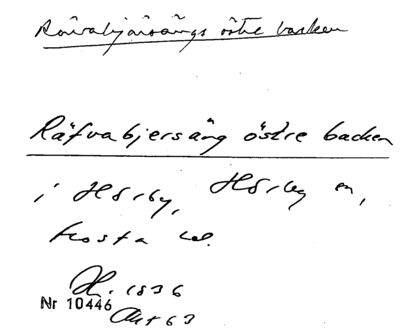 Rävabjärsängs östre backen
Räfvabjersäng östre backen
i Hörby, Hörby sn,
Frosta hd.
H. 1836
Nr 10446
Akt 63